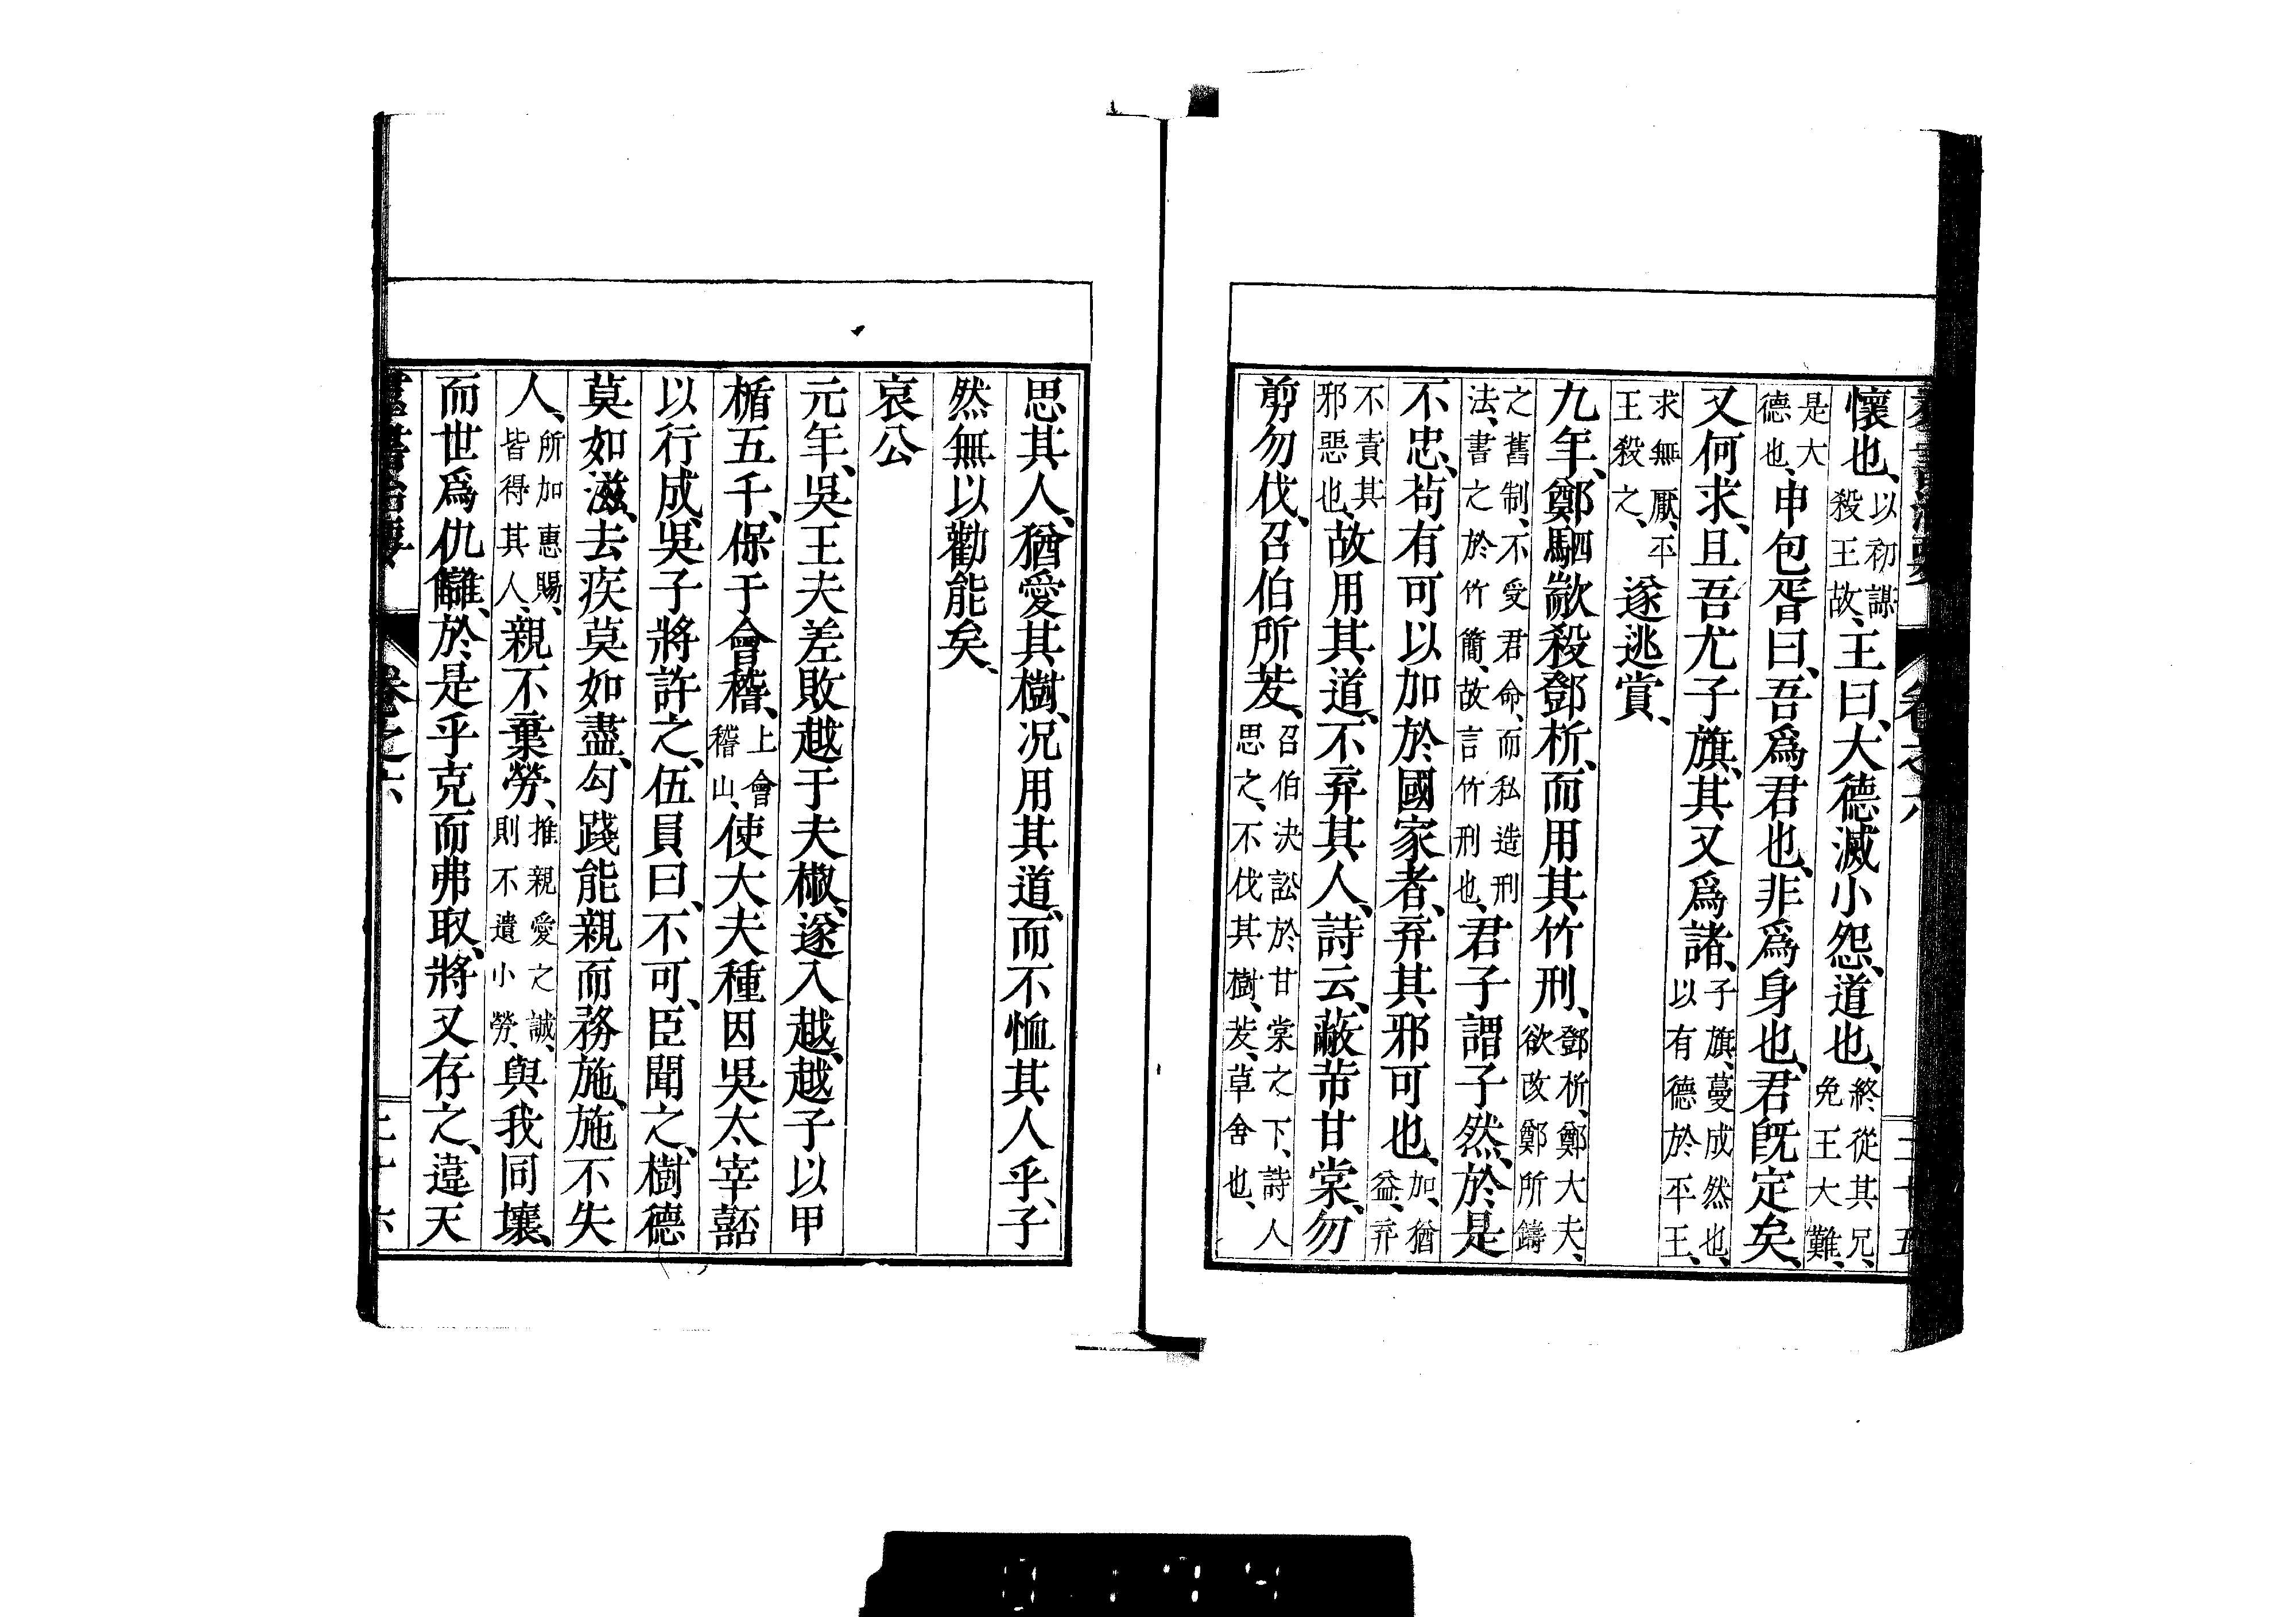 懷也、以初謀殺王故、王曰、大德滅小怨、道也、終從其兄、免王大難、
是大德也、申包胥曰、吾爲君也、非爲身也、君旣定矣、
又何求、且吾尤子旗、其又爲諸、子旗、蔓成然也、以有德於平王、
求無厭、平王殺之、遂逃賞、
九年、鄭駟歂殺鄧析、而用其竹刑、鄧析、鄭大夫、欲改鄭所鑄
之舊制、不受君命、而私造刑法、書之於竹簡、故言竹刑也、君子謂子然、於是
不忠、茍有可以加於國家者、弃其邪可也、加、猶益、弃
不責其邪惡也、故用其道、不弃其人、詩云、蔽芾甘棠、勿
剪勿伐、召伯所茇、召伯決訟於甘棠之下、詩人思之、不伐其樹、茇、草舍也、
思其人、猶愛其樹、況用其道、而不恤其人乎、子
然無以勸能矣、
哀公
元年、吳王夫差敗越于夫椒、遂入越、越子以甲
楯五千、保于會稽、上會稽山、使大夫種因吳太宰嚭
以行成、吳子將許之、伍員曰、不可、臣聞之、樹德
莫如滋、去疾莫如盡、勾踐能親而務施、施不失
人、所加惠賜、皆得其人、親不棄勞、推親愛之誠、則不遺小勞、與我同壤、
而世爲仇讎、於是乎克而弗取、將又存之、違天
卷之六